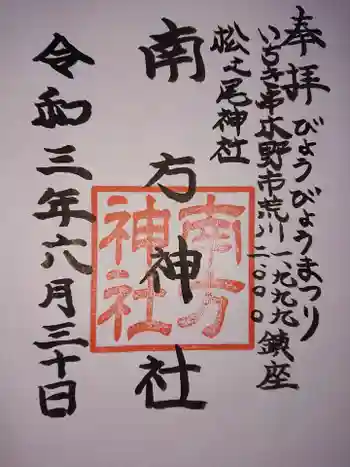 奉拝 びょうびょうまつり
いちき串木野市荒川一九九九
二〇〇〇 鎮座
松之尾神社
南方神社
南方神社
令和三年六月三十日